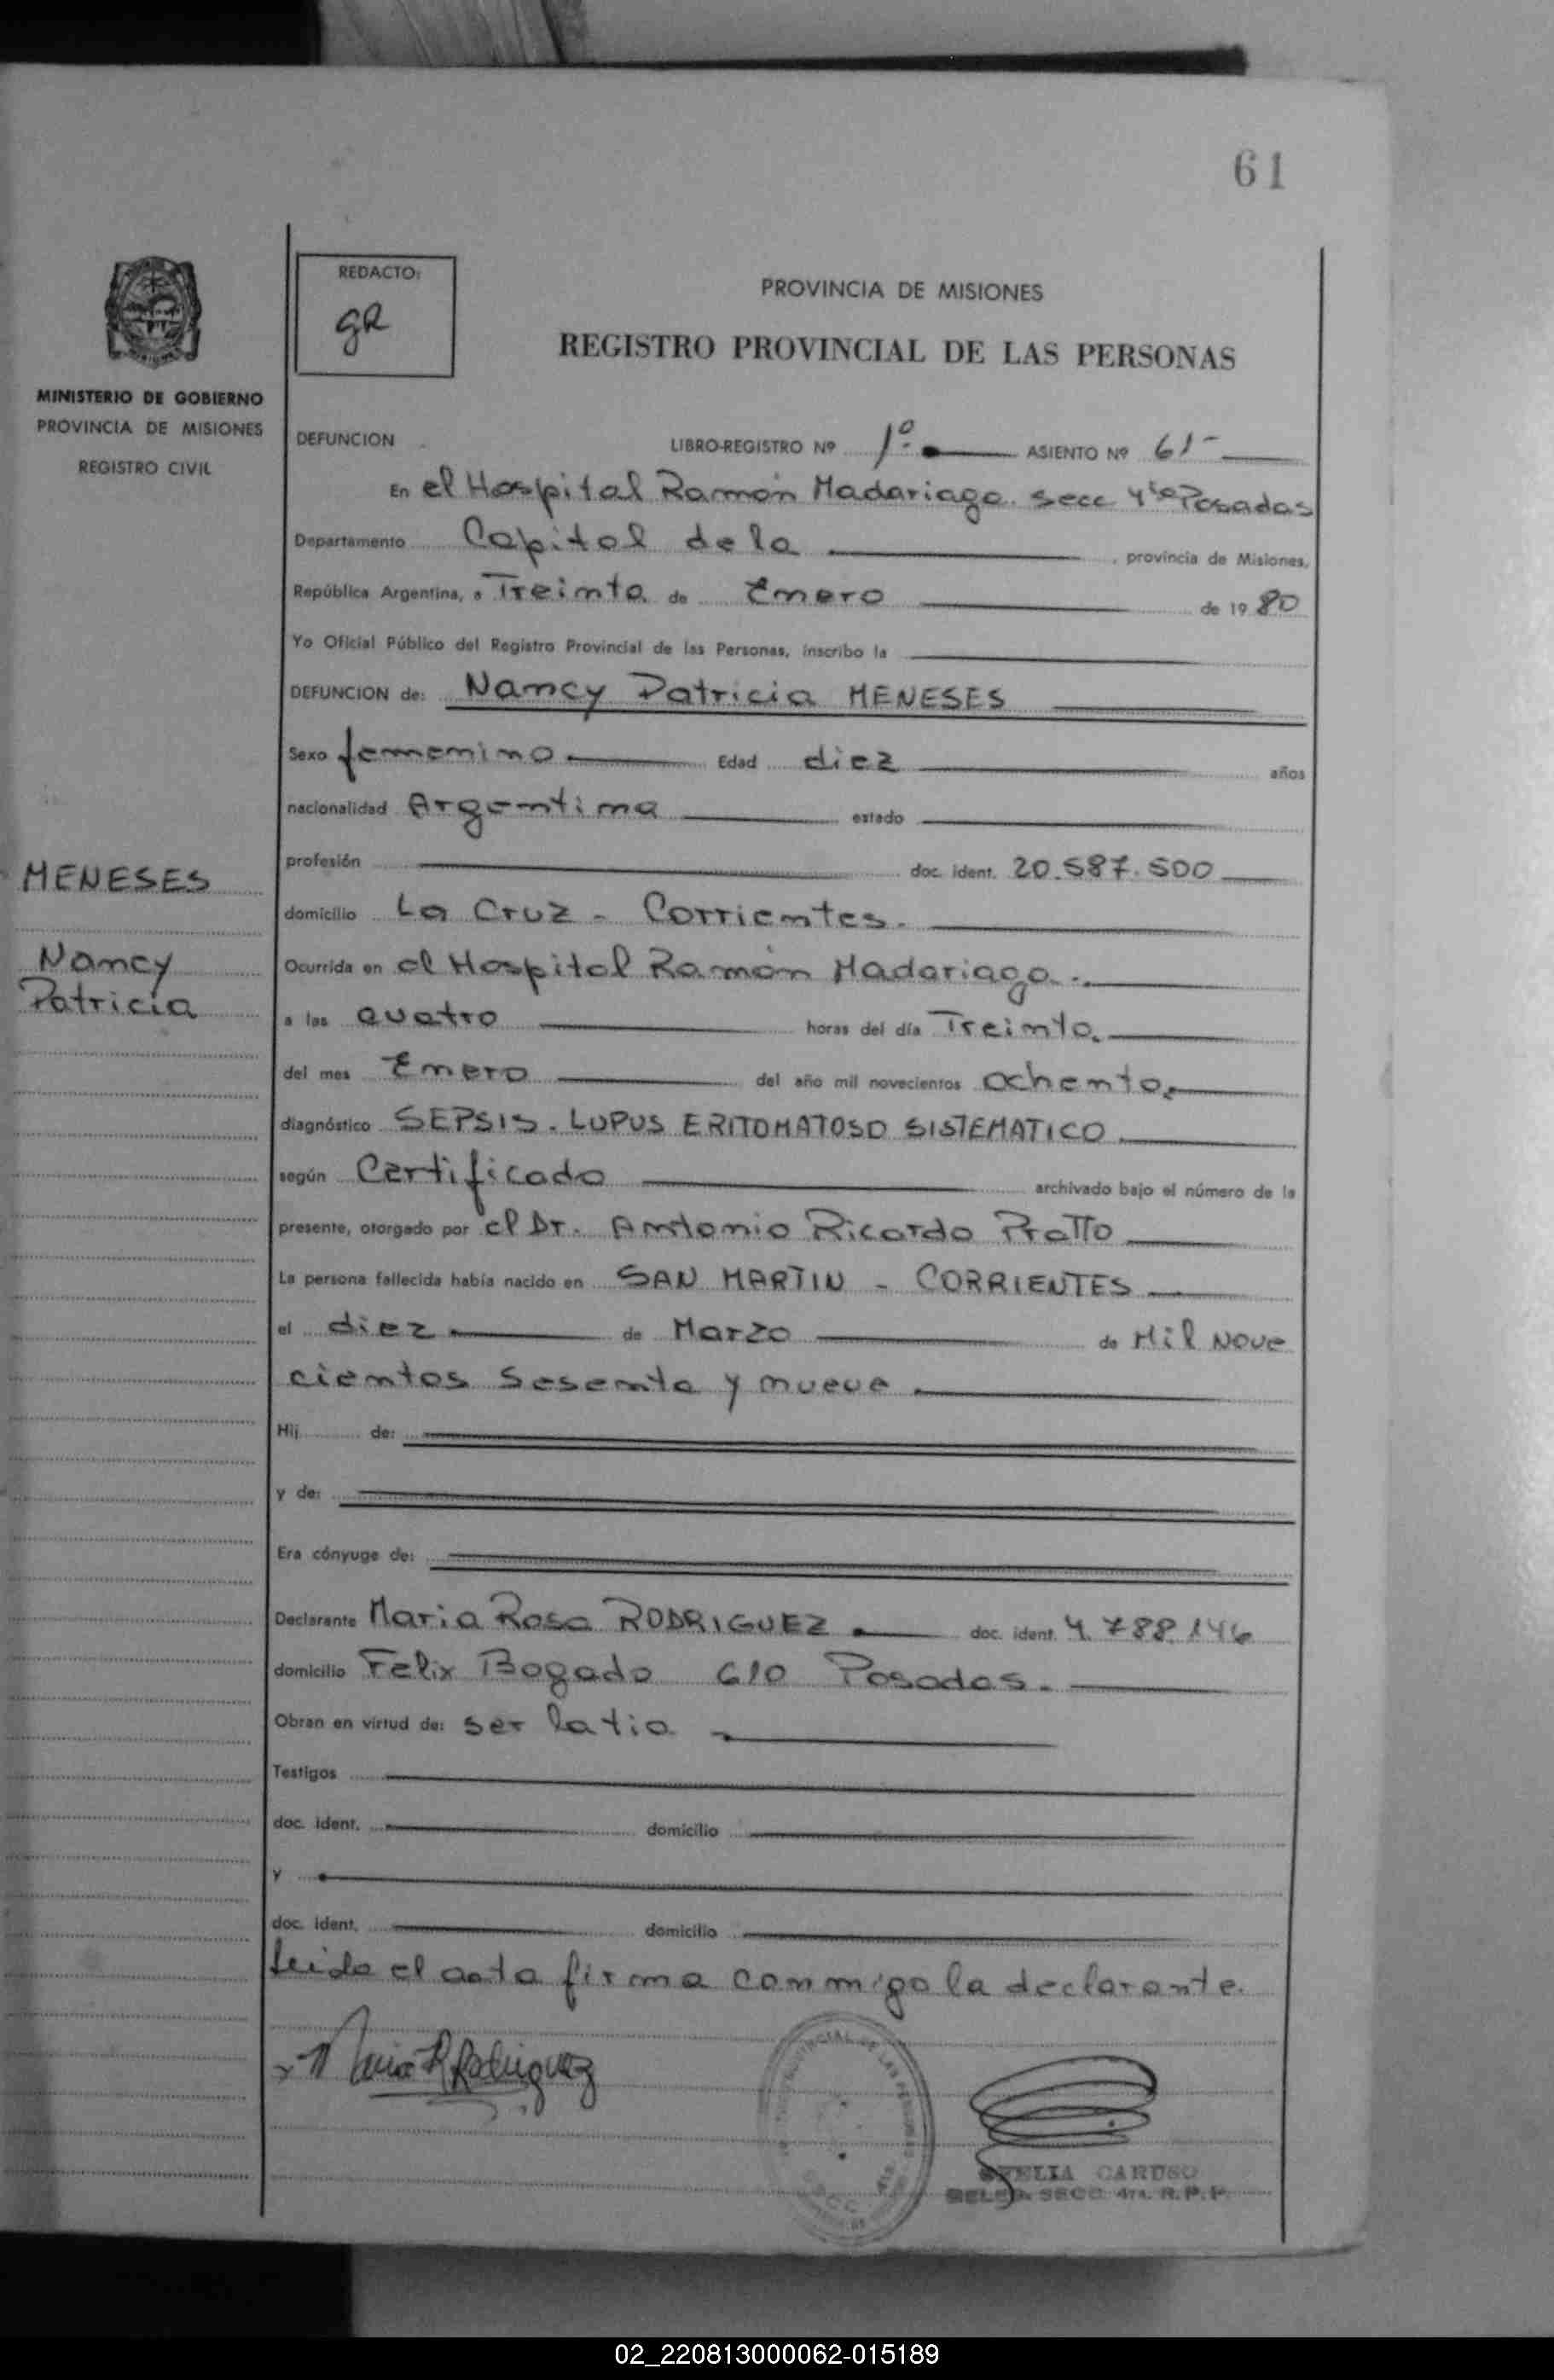 61
REDACTO:
gR
PROVINCIA DE MISIONES
REGISTRO PROVINCIAL DE LAS PERSONAS
MINISTERIO DE GOBIERNO
PROVINCIA DE MISIONES
REGISTRO CIVIL
DEFUNCION LIBRO-REGISTRO Nº 1º ASIENTO Nº 61-
En el Hospital Ramón Madariaga. secc 4ta Posadas
Departamento Capital de la , provincia de Misiones,
República Argentina, a Treinta de Enero de 19 80
Yo Oficial Público del Registro Provincial de las Personas, inscribo la
DEFUNCION de: Nancy Patricia MENESES
Sexo femenino Edad diez años
nacionalidad Argentina estado
profesión doc. ident. 20.587.500
MENESES
domicilio La Cruz - Corrientes.
Nancy
Patricia
Ocurrida en el Hospital Ramón Madariaga.
a las cuatro horas del día Treinta.
del mes Enero del año mil novecientos ochenta.
diagnóstico SEPSIS. LUPUS ERITOMATOSO SISTEMATICO
según Certificado archivado bajo el número de la
presente, otorgado por el Dr. Antonio Ricardo Pratto
La persona fallecida había nacido en SAN MARTIN - CORRIENTES
el diez de Marzo de Mil Nove
cientos sesenta y nueve
Hij de:
y de:
Era cónyuge de:
Declarante Maria Rosa RODRIGUEZ doc. ident. 4.788.146
domicilio Felix Bogado 610 Posadas.
Obran en virtud de: ser la tia
Testigos
doc. ident. domicilio
y
doc. ident. domicilio
Leida el acta firma conmigo la declarante.
Maria R Rodriguez
CARUSO
SECC 4ta. R.P.P.
02_220813000062-015189